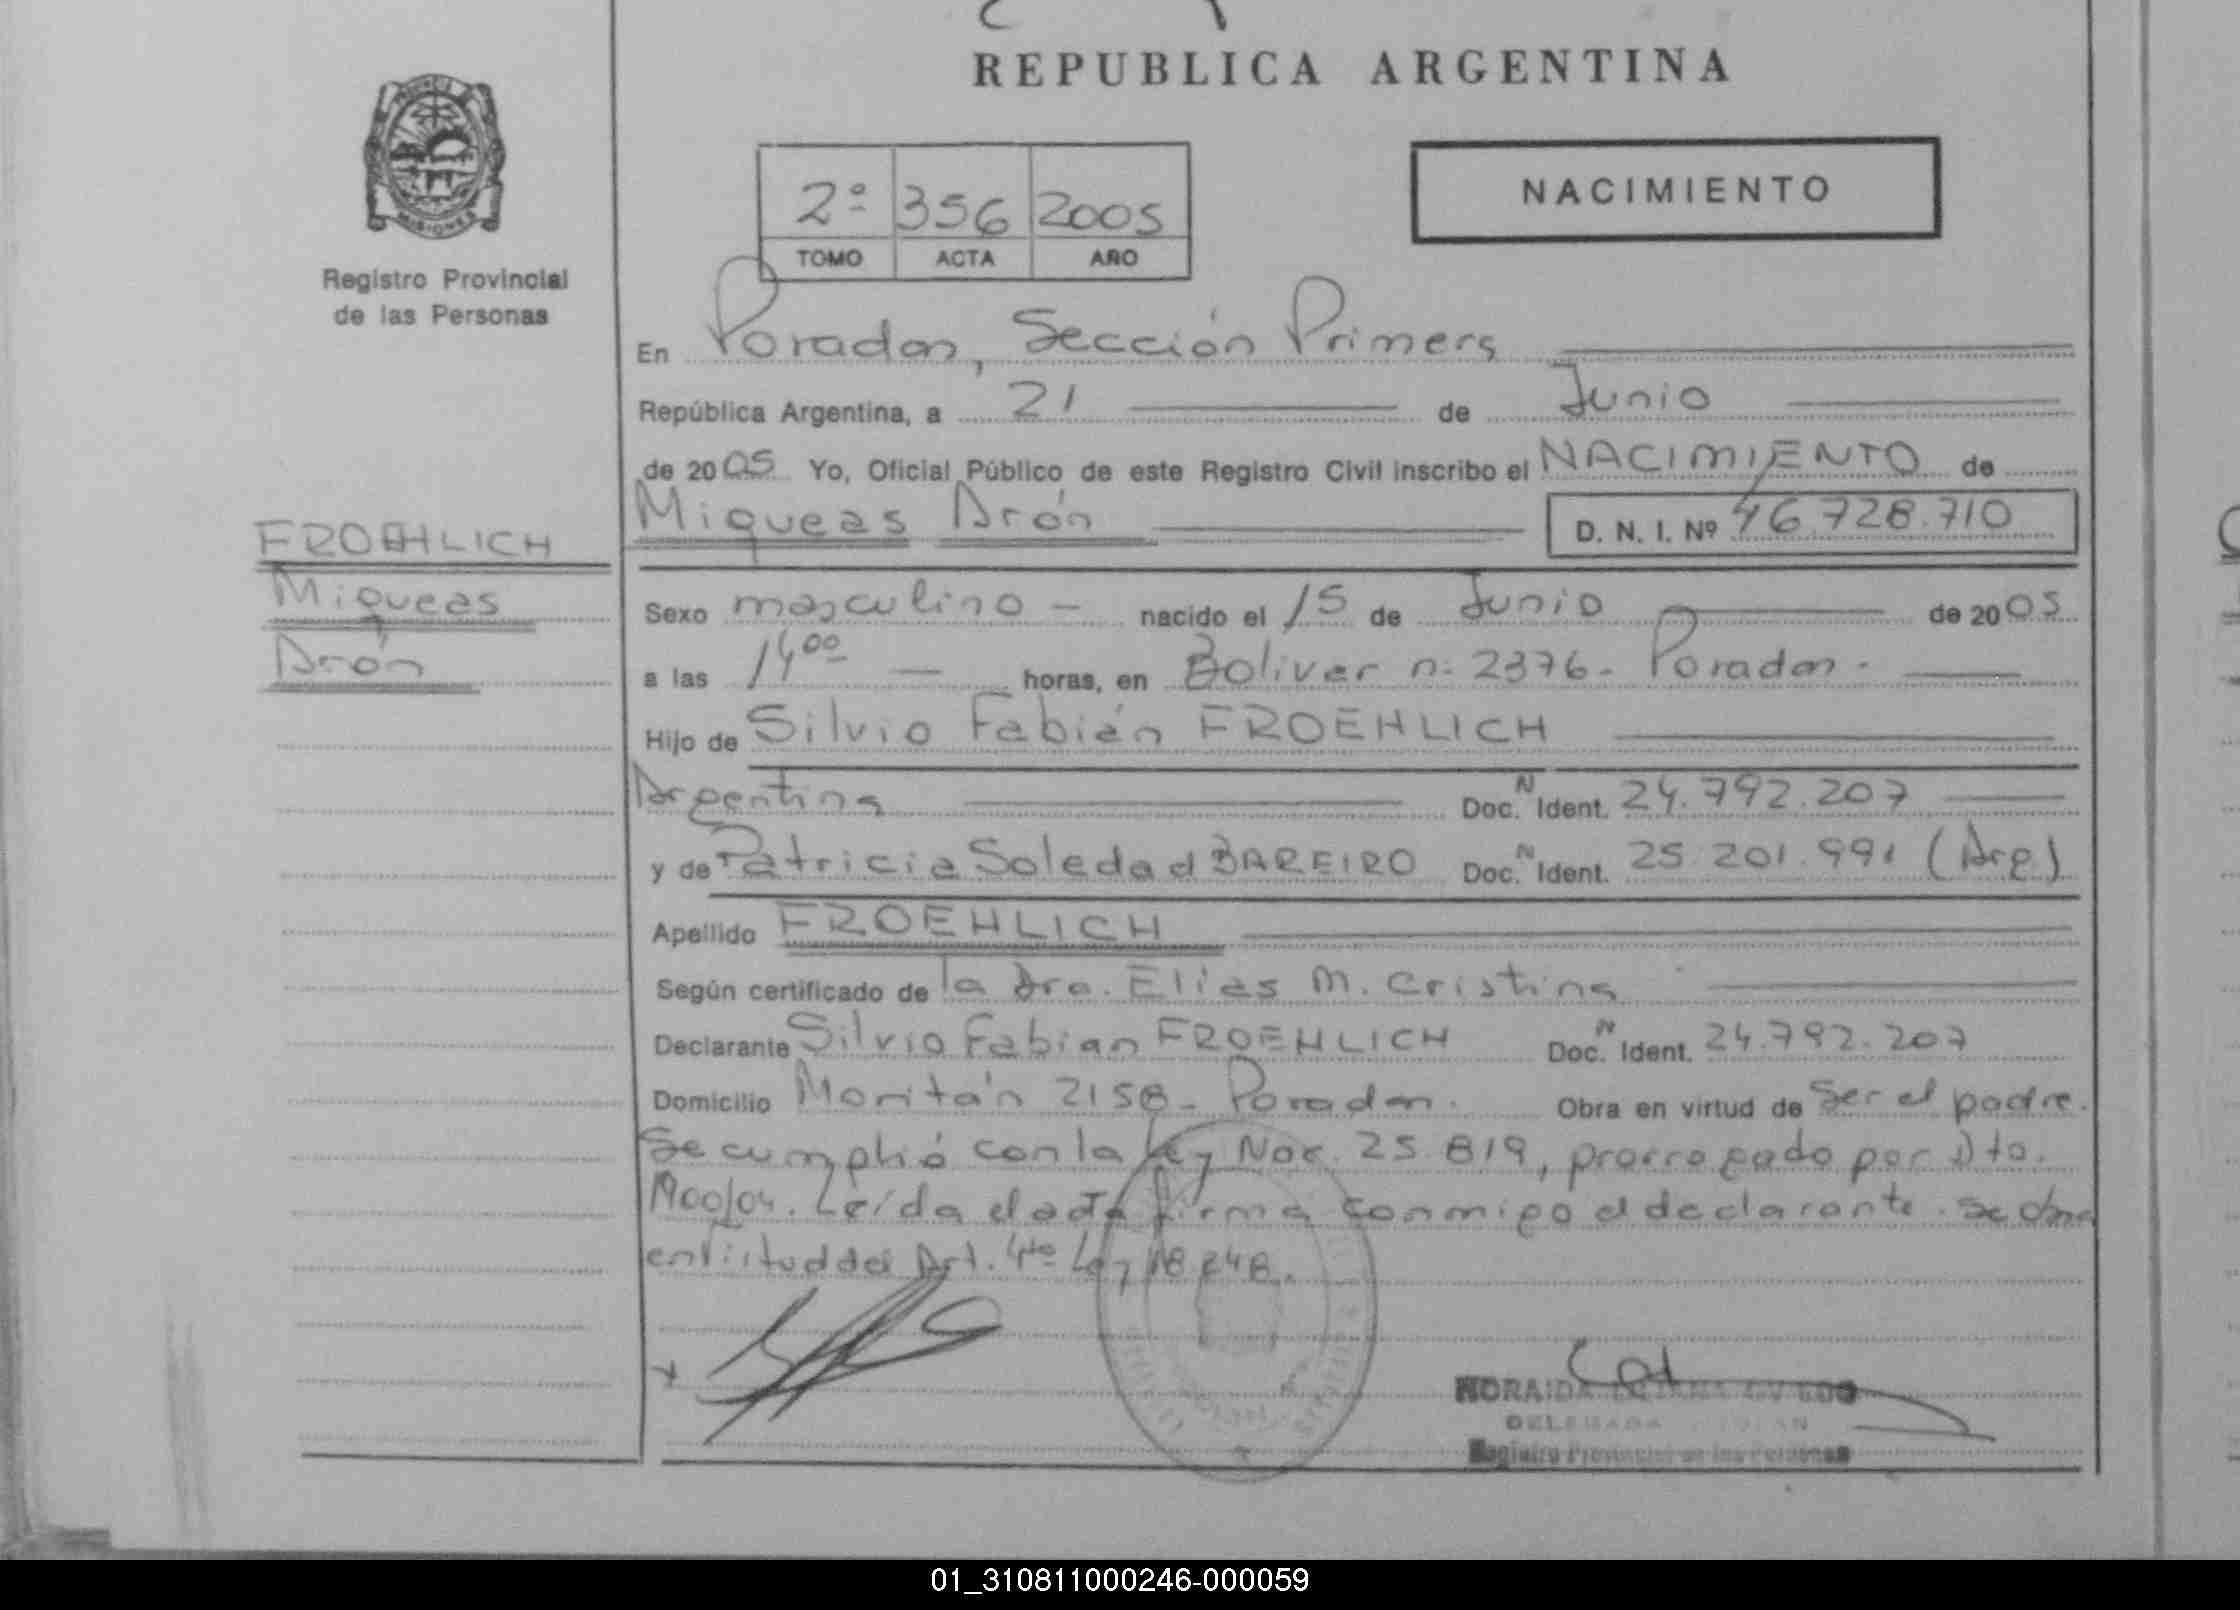 REPUBLICA ARGENTINA
MISIONES
Registro Provincial
de las Personas
2º 356 2005
TOMO ACTA AÑO
NACIMIENTO
En Posadas, Sección Primera
República Argentina, a 21 de Junio
de 2005 Yo, Oficial Público de este Registro Civil inscribo el NACIMIENTO de
Miqueas Arón D. N. I. Nº 46.728.710
FROEHLICH
Miqueas
Arón
Sexo masculino - nacido el 15 de Junio de 2005
a las 14 00 horas, en Bolivar n: 2376- Posadas.
Hijo de Silvio Fabián FROEHLICH
Argentina Doc. N Ident. 24.792.207
y de Patricia Soledad BAREIRO Doc. N Ident. 25.201.991 (Arg)
Apellido FROEHLICH
Según certificado de la Dra. Elias M. Cristina
Declarante Silvio Fabian FROEHLICH Doc. N Ident. 24.792.207
Domicilio 2158- Posadas. Obra en virtud de Ser el padre.
Se cumplió con la Ley Nac. 25.819, prorrogado por Dto.
1900/04. Leída el acta firma conmigo el declarante. Se obra
en virtud del Art. 4to Ley 18.248.
DELEGADA
Registro Provincial de las Personas
01_310811000246-000059